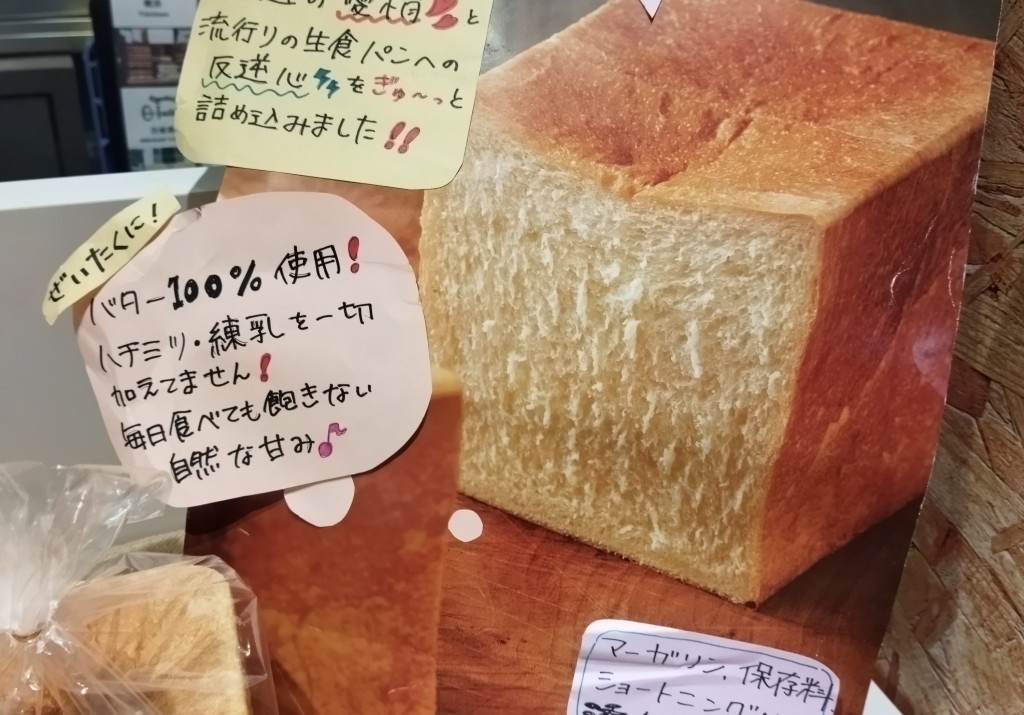 の愛情と
流行りの生食パンへの
反逆心をぎゅ〜っと
詰め込みました!!
ぜいたくに!
バター100%使用!
ハチミツ・練乳を一切
加えてません!
毎日食べても飽きない
自然な甘み♪
マーガリン、保存料、
ショートニング